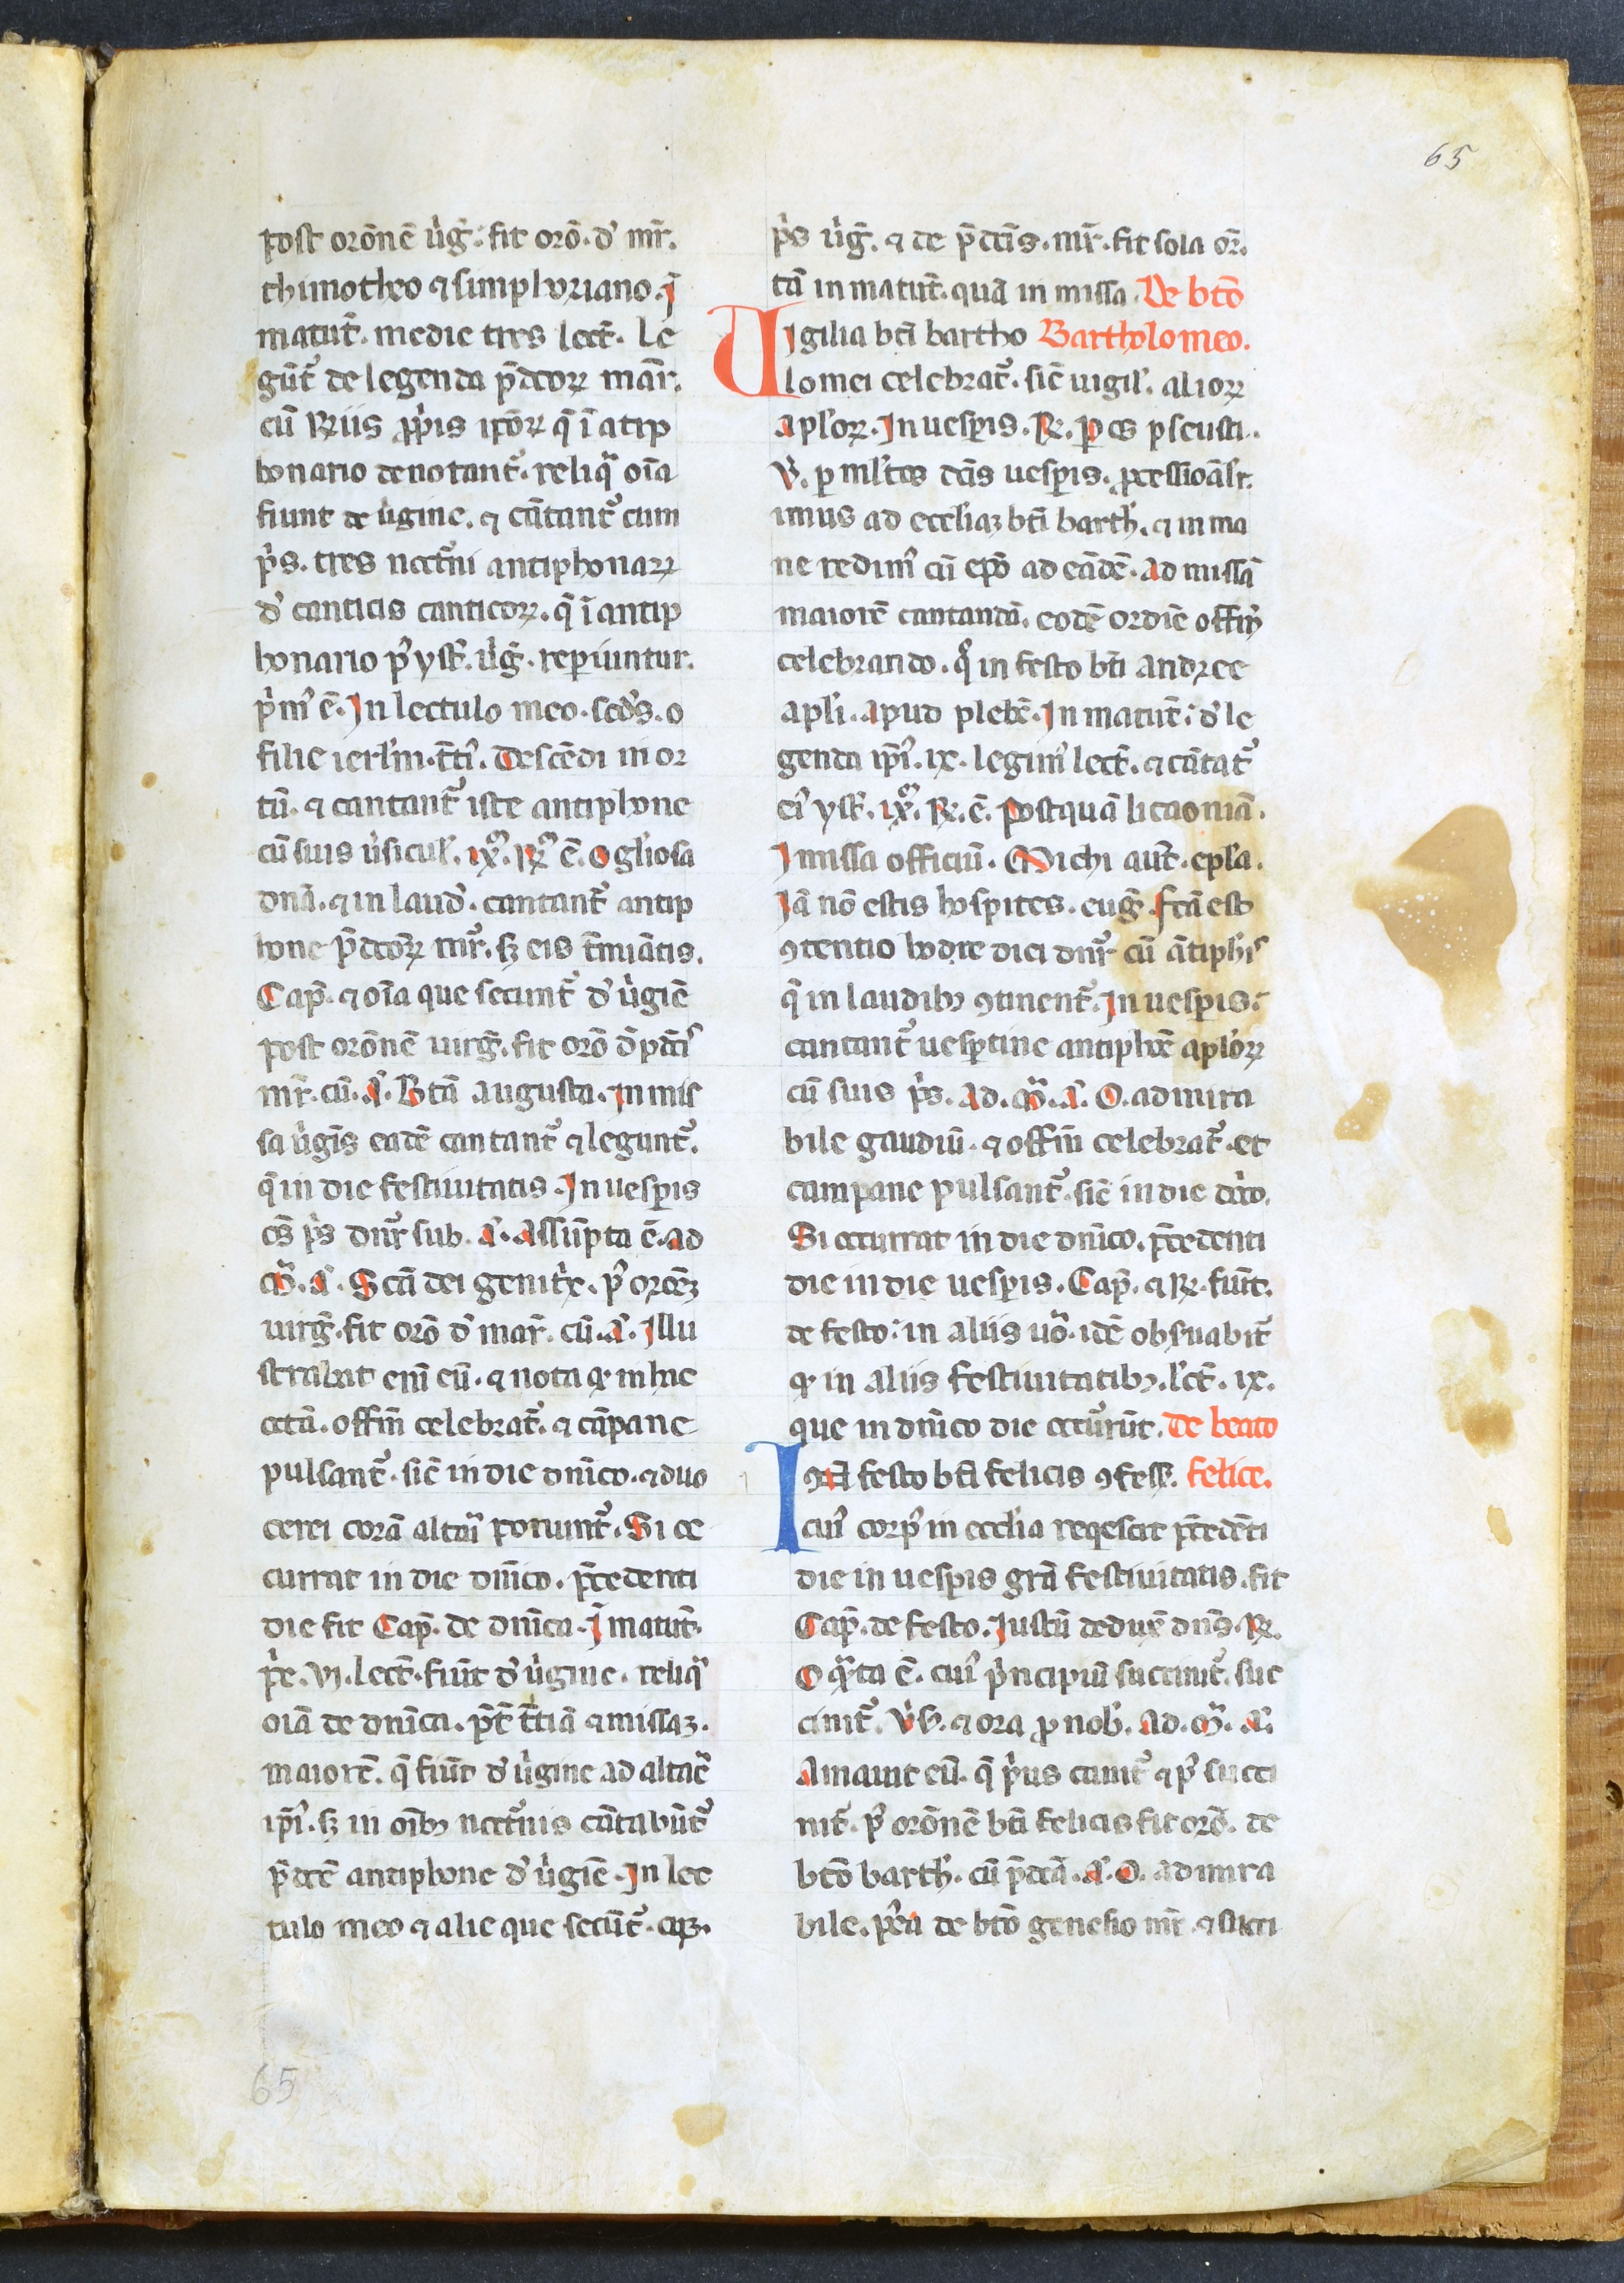 65
post orōnē ůg̃. fit orō. d' mr̃.
thimotheo ⁊ simphoriano. ī
matut̃. medie tres lect̃. Le
gūt᷑ de legenda p̄dcoꝝ mar̃.
cū ℞iis ꝓpis ip̄oꝝ q̄ ī atip
honario denotant᷑. reliq̃ oīa
fiunt de ůgine. ⁊ cātant᷑ cum
p̃s. tres nct̃ni antiphonaꝝ
d' canticis canticoꝝ. q̄ ī antip
honario p' yst̃. ůg̃. reperiuntur.
p̃m' ē. In lectulo meo. sc̄ds. o
filie ierl'm. t̄ti'. Descēdi in or
tū. ⁊ cantant᷑ iste antiphone
cū suis ůsicul'. ix᷑. ℞ ē. O gl'iosa
dn̄a. ⁊ in laud'. cantant᷑ antip
hone p̄dcoꝝ mr̃. sꝫ eis t̄miātis.
Cap̃. ⁊ oīa que secunt᷑ d' ůgīe
post orōnē uirg̃. fit orō d̄ p̄dci'
mr̃. cū. A'. Btā augusta. In mis
sa ůgīs eadē cantant᷑ ⁊ legunt᷑.
q̄ in die festiuitatis. In uesꝑis
oẽs p̃s dn̄r sub. A'. Assūpta ē. ad
m̃. A'. Scā dei genit̃x. p' oroēꝫ
uirg̃. fit orō d' mar̃. cū. A'. Illu
strabit enī eū. ⁊ nota ꝙ in hac
octā. offm̄ celebrat᷑. ⁊ cāpane
pulsant᷑. sic̄ in die dn̄ico. ⁊ duo
cerei corā altari ponunt᷑. Si oc
currat in die dn̄ico. p̄cedenti
die fit Cap̃. de dn̄ica. I matut̃.
p̃e. vi. lect̃. fiūt d' ůgine. reliq̃
oīa de dn̄ica. p̄t t̄tiā ⁊ missaꝫ.
maiorē. q̄ fiūt d' ůgine ad altar̃
ip̄i'. sꝫ in oībꝫ nct̃nis cātabūt᷑
p̄dcē antiphone d' ůgīe. In lec
tulo meo ⁊ alie que secūt᷑.
p̃s ůg̃. ⁊ de p̄dcis. mr̃. fit sola or̃.
tā in matut̃. quā in missa. De bt̄o
Uigilia bt̄i bartho Bartholomeo.
lomei celebrat᷑. sic̄ uigil'. alioꝝ
apl'oꝝ. In uesꝑis. ℞. ꝑ os ꝑseusti.
V̄. ꝑ ml'tos dcis uesꝑis. ꝓcessioāl'r.
imus ad eccl'iaꝫ bt̄i barth'. ⁊ in ma
ne redim' cū ep̄o ad eādē. ad missā
maiorē cantandā. eodē ordīe offm̄
celebrando. q̊ in festo bt̄i andree
apl'i. apud plebē. In matut̃. d' le
genda ip̄i'. ix. legim' lect̃. ⁊ cātat᷑
ei' yst̃. ix᷑. ℞. ē. Postquā licaoniā.
I missa officiū. Michi aut̃. epl'a.
Iā nō estis hospites. eug̃. fcā est
ꝯtentio hodie dici dn̄r cū ātiph'is
q̄ in laudibꝫ ꝯtinent᷑. In uesꝑis.
cantant᷑ uesꝑtine antiphōe apl'oꝝ
cū suis p̃s. Ad. m̃. A'. O. admira
bile gaudiū. ⁊ offm̄ celebrat᷑. et
campane pulsant᷑. sic̄ in die dn̄ico.
Si occurrat in die dn̄ico. p̄cedenti
die in die uesꝑis. Cap̃. ⁊ ℞. fiūt.
de festo. in aliis ůo. idē obſuabit᷑
ꝙ in aliis festiuitatibꝫ. lect̃. ix.
que in dn̄ico die occurrūt. De beato
IN festo bt̄i felicis ꝯfess̃. Felice.
cui' corp' in eccl'ia reqescit p̄cedēti
die in uesꝑis grā festiuitatis. fit
Cap̃. de festo. Iustū deduxͭ dn̄s. ℞.
O q̃ta ē. cui' p̃ncipiū succinit᷑. suc
cinit᷑. V̄s̃. ⁊ ora ꝓ nob'. Ad. m̃. A'.
Amauit eū. q̄ p̃us canit᷑ ⁊ p' succi
nit᷑. p' orōnē bt̄i felicis fit orō. de
bt̄o barth'. cū p̄dcā. A'. O. admira
bile. p̊ea de bt̄o genesio mr̃. ⁊ succi
65